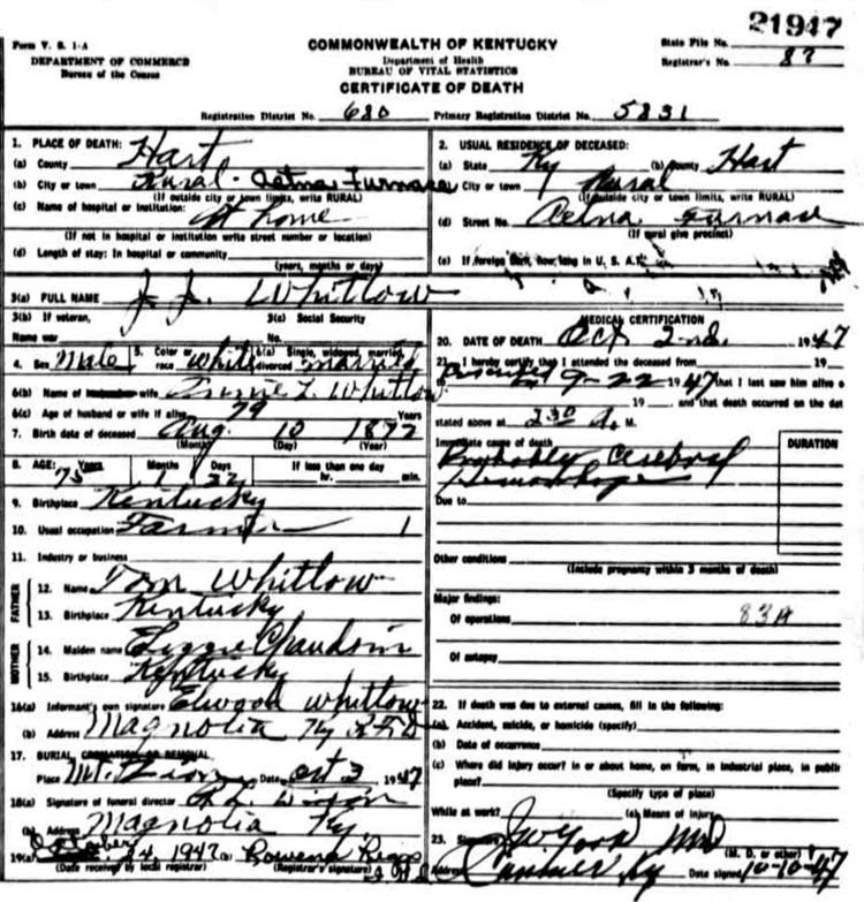 21947
Form V. S. 1-A
DEPARTMENT OF COMMERCE
Bureau of the Census
COMMONWEALTH OF KENTUCKY
Department of Health
BUREAU OF VITAL STATISTICS
CERTIFICATE OF DEATH
State File No.
Registrar's No. 87
Registration District No. 680 Primary Registration District No. 5831
1. PLACE OF DEATH:
(a) County Hart
(b) City or town Rural - Aetna Furnace
(If outside city or town limits, write RURAL)
(c) Name of hospital or institution: At home
(If not in hospital or institution write street number or location)
(d) Length of stay: In hospital or community
(years, months or days)
2. USUAL RESIDENCE OF DECEASED:
(a) State Ky (b) County Hart
City or town Rural
(If outside city or town limits, write RURAL)
(d) Street No. Aetna Furnace
(If rural give precinct)
(e) If foreign born, how long in U. S. A.?
3(a) FULL NAME J. J. Whitlow
3(b) If veteran,
Name war
3(c) Social Security
No.
4. Sex Male 5. Color or race white 6(a) Single, widowed, married, divorced married
6(b) Name of husband or wife Annie L. Whitlow
6(c) Age of husband or wife if alive 79 Years
7. Birth date of deceased Aug. 10 1872
(Month) (Day) (Year)
8. AGE: Years 75 Months 1 Days 22 If less than one day hr. min.
9. Birthplace Kentucky
10. Usual occupation Farmer 1
11. Industry or business
FATHER
12. Name Tom Whitlow
13. Birthplace Kentucky
MOTHER
14. Maiden name Lizzie Chaudoin
15. Birthplace Kentucky
16(a) Informant's own signature Elwood Whitlow
(b) Address Magnolia Ky R F D
17. BURIAL, CREMATION OR REMOVAL
Place Mt. Date Oct 3 1947
18(a) Signature of funeral director
(b) Address Magnolia Ky.
19(a) October 24, 1947 (b) Rowena Riggs
(Date received by local registrar) (Registrar's signature)
MEDICAL CERTIFICATION
20. DATE OF DEATH Oct 2nd. 1947
21. I hereby certify that I attended the deceased from 19
9-22 1947 that I last saw him alive o
19 , and that death occurred on the dat
stated above at 2:30 A. M.
Immediate cause of death
Probably Cerebral
Hemorrhage
DURATION
Due to
Other conditions
(Include pregnancy within 3 months of death)
Major findings:
Of operations 83A
Of autopsy
22. If death was due to external causes, fill in the following:
(a) Accident, suicide, or homicide (specify)
(b) Date of occurrence
(c) Where did injury occur? in or about home, on farm, in industrial place, in public
place?
(Specify type of place)
While at work? (e) Means of injury
23. MD
(M. D. or other)
Address Canmer Ky Date signed 10-10-47